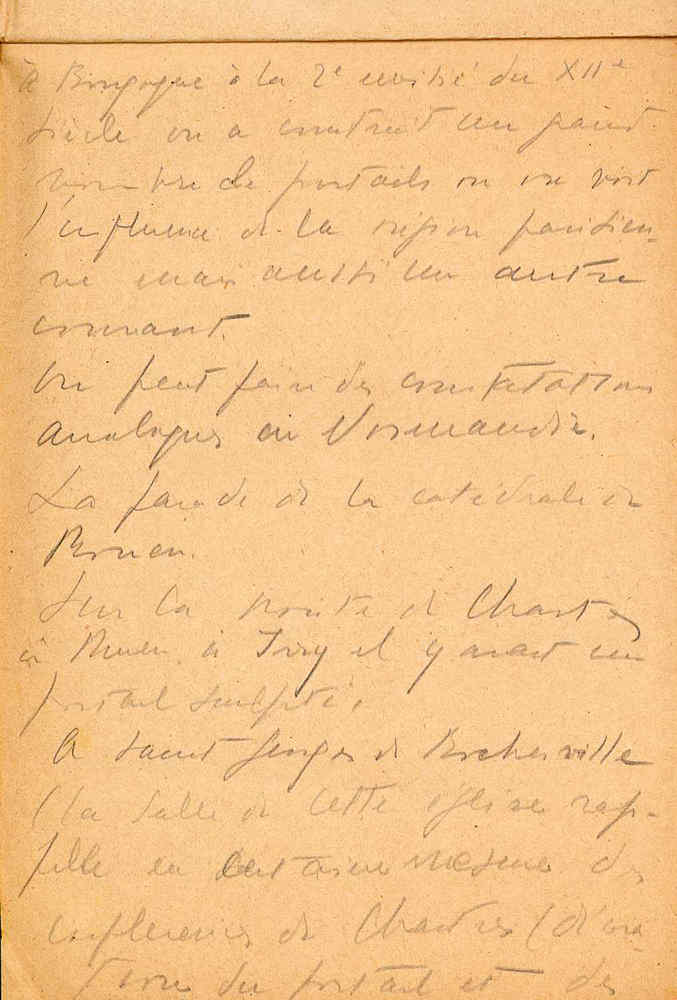 à Bourgogne à la 2e moitié du XIIe
siècle on a construit un grand
nombre de portails ou on voit
l'influence de la région parisien-
ne mais aussi un autre
courant.
On peut faire des constatations
analogues en Normandie.
La façade de la catédrale de
Rouen.
Sur la route de Chartres
à Rouen à Ivry il y avait un
portail sculpté.
A Saint Georges de Bocherville
(la salle de cette église rap-
pelle en certaine mesure des
influences de Chartres (
du portail et des